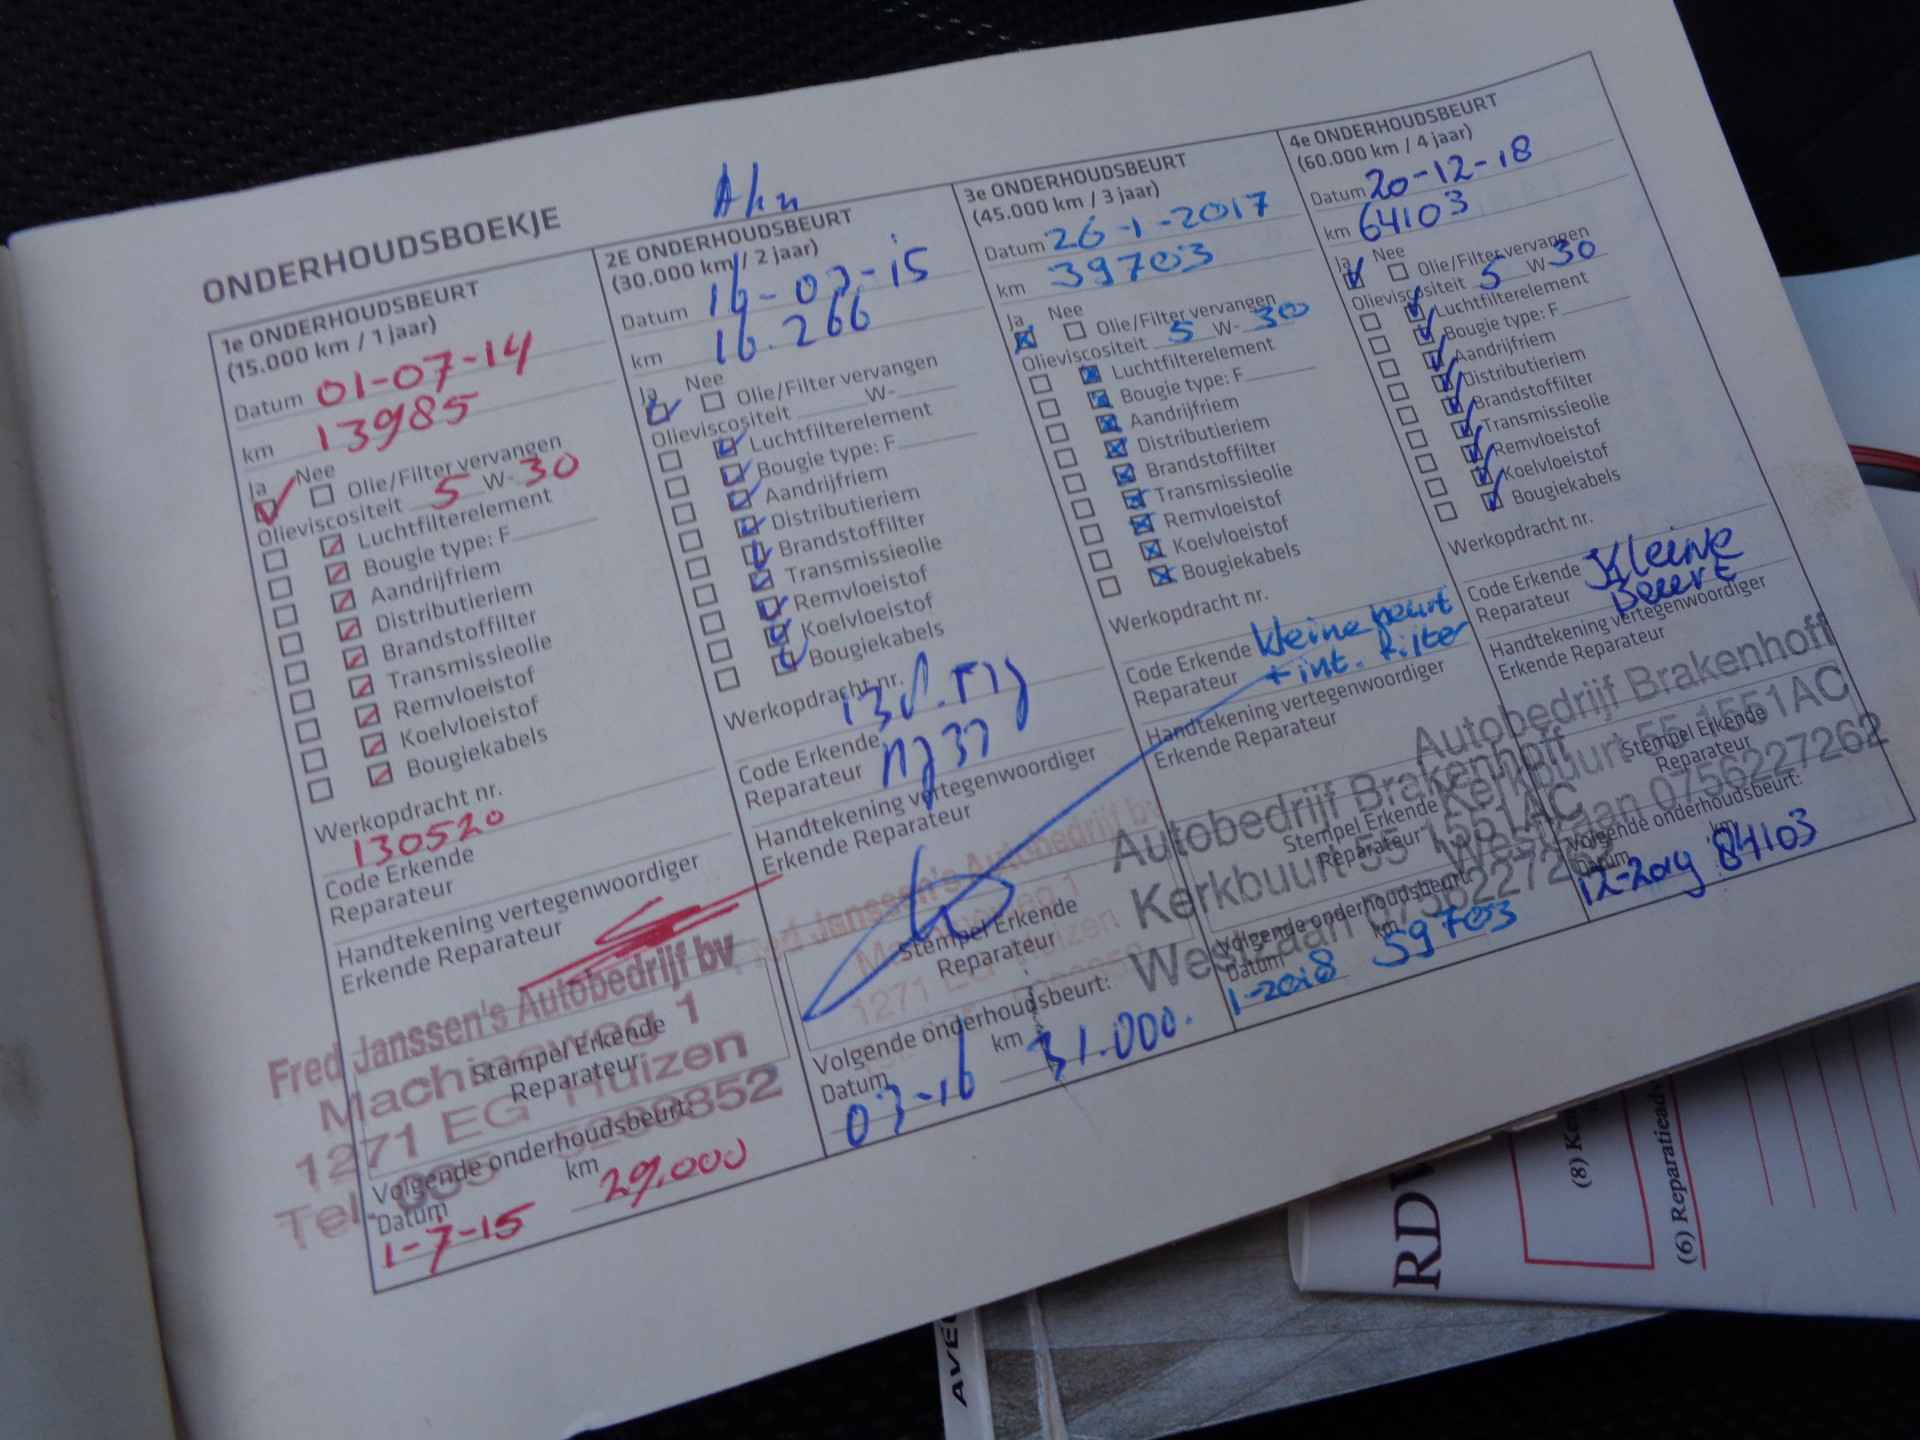 ONDERHOUDSBOEKJE
1e ONDERHOUDSBEURT
(15.000 km / 1 jaar)
Datum 01-07-14
km 13985
Ja Nee
Olie/Filter vervangen
Olieviscositeit 5 W- 30
Luchtfilterelement
Bougie type: F
Aandrijfriem
Distributieriem
Brandstoffilter
Transmissieolie
Remvloeistof
Koelvloeistof
Bougiekabels
Werkopdracht nr.
130520
Code Erkende
Reparateur
Handtekening vertegenwoordiger
Erkende Reparateur
Fred Janssen's Autobedrijf bv
Machineweg 1
1271 EG Huizen
Tel. 035
Stempel Erkende
Reparateur
Volgende onderhoudsbeurt:
Datum km
1-7-15 29.000
2E ONDERHOUDSBEURT
(30.000 km / 2 jaar)
Datum 16-07-15
km 16.266
Ja Nee
Olie/Filter vervangen
Olieviscositeit W-
Luchtfilterelement
Bougie type: F
Aandrijfriem
Distributieriem
Brandstoffilter
Transmissieolie
Remvloeistof
Koelvloeistof
Bougiekabels
Werkopdracht nr.
Code Erkende
Reparateur
Handtekening vertegenwoordiger
Erkende Reparateur
Fred Janssen's Autobedrijf bv
1271 EG Huizen
Stempel Erkende
Reparateur
Volgende onderhoudsbeurt:
Datum km
07-16 31.000.
3e ONDERHOUDSBEURT
(45.000 km / 3 jaar)
Datum 26-1-2017
km 39703
Ja Nee
Olie/Filter vervangen
Olieviscositeit 5 W- 30
Luchtfilterelement
Bougie type: F
Aandrijfriem
Distributieriem
Brandstoffilter
Transmissieolie
Remvloeistof
Koelvloeistof
Bougiekabels
Werkopdracht nr.
Code Erkende kleine beurt
Reparateur + int. filter
Handtekening vertegenwoordiger
Erkende Reparateur
Autobedrijf Brakenhoff
Kerkbuurt 55 1551AC
Westzaan 0756227262
Stempel Erkende
Reparateur
Volgende onderhoudsbeurt:
Datum km
1-2018 59703
4e ONDERHOUDSBEURT
(60.000 km / 4 jaar)
Datum 20-12-18
km 64103
Ja Nee
Olie/Filter vervangen
Olieviscositeit 5 W- 30
Luchtfilterelement
Bougie type: F
Aandrijfriem
Distributieriem
Brandstoffilter
Transmissieolie
Remvloeistof
Koelvloeistof
Bougiekabels
Werkopdracht nr.
Code Erkende Kleine
Reparateur Beurt
Handtekening vertegenwoordiger
Erkende Reparateur
Autobedrijf Brakenhoff
Kerkbuurt 55 1551AC
Westzaan 0756227262
Stempel Erkende
Reparateur
Volgende onderhoudsbeurt:
Datum km
12-2019 84103
RDW
(6)